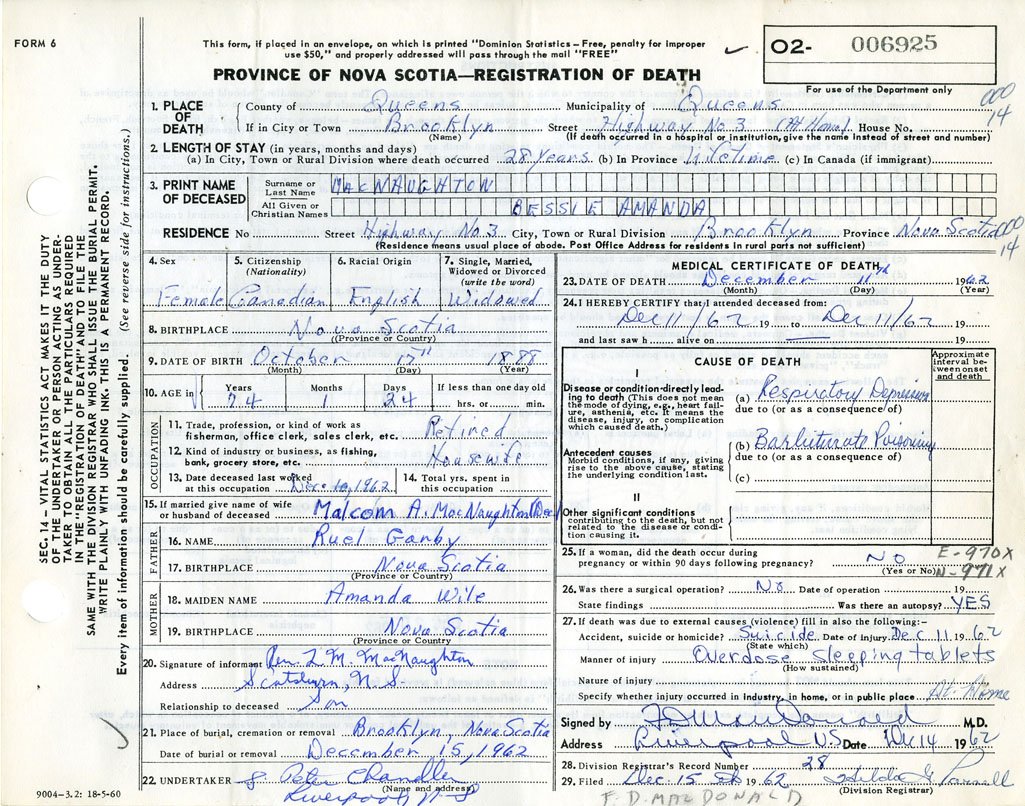 FORM 6
This form, if placed in an envelope, on which is printed "Dominion Statistics – Free, penalty for improper
use $50," and properly addressed will pass through the mail "FREE"
O2- 006925
For use of the Department only
PROVINCE OF NOVA SCOTIA—REGISTRATION OF DEATH
SEC. 14 – VITAL STATISTICS ACT MAKES IT THE DUTY
OF THE UNDERTAKER OR PERSON ACTING AS UNDER-
TAKER TO OBTAIN ALL THE PARTICULARS REQUIRED
IN THE "REGISTRATION OF DEATH" AND TO FILE THE
SAME WITH THE DIVISION REGISTRAR WHO SHALL ISSUE THE BURIAL PERMIT.
WRITE PLAINLY WITH UNFADING INK. THIS IS A PERMANENT RECORD.
Every item of information should be carefully supplied. (See reverse side for instructions.)
1. PLACE OF DEATH
County of Queens Municipality of Queens
000
14
If in City or Town Brooklyn Street Highway No 3 (At Home) House No.
(Name) (If death occurred in a hospital or institution, give the name instead of street and number)
2. LENGTH OF STAY (in years, months and days)
(a) In City, Town or Rural Division where death occurred 28 Years (b) In Province Lifetime (c) In Canada (if immigrant)
3. PRINT NAME OF DECEASED
Surname or Last Name MACNAUGHTON
All Given or Christian Names BESSIE AMANDA
RESIDENCE No Street Highway No. 3 City, Town or Rural Division Brooklyn Province Nova Scotia
000
14
(Residence means usual place of abode. Post Office Address for residents in rural parts not sufficient)
4. Sex Female
5. Citizenship (Nationality) Canadian
6. Racial Origin English
7. Single, Married, Widowed or Divorced (write the word) Widowed
8. BIRTHPLACE Nova Scotia
(Province or Country)
9. DATE OF BIRTH October 17th 1888
(Month) (Day) (Year)
10. AGE in Years 74 Months 1 Days 24 If less than one day old hrs. or min.
OCCUPATION
11. Trade, profession, or kind of work as
fisherman, office clerk, sales clerk, etc. Retired
12. Kind of industry or business, as fishing,
bank, grocery store, etc. Housewife
13. Date deceased last worked
at this occupation Dec 10, 1962
14. Total yrs. spent in
this occupation
15. If married give name of wife
or husband of deceased Malcom A. MacNaughton (Dec)
FATHER
16. NAME Ruel Canby
17. BIRTHPLACE Nova Scotia
(Province or Country)
MOTHER
18. MAIDEN NAME Amanda Wile
19. BIRTHPLACE Nova Scotia
(Province or Country)
20. Signature of informant Rev. L. M. MacNaughton
Address Scotsburn, N.S.
Relationship to deceased Son
21. Place of burial, cremation or removal Brooklyn, Nova Scotia
Date of burial or removal December 15, 1962
22. UNDERTAKER S Peter Chandler
(Name and address)
Liverpool, N S
9004–3.2: 18-5-60
MEDICAL CERTIFICATE OF DEATH
23. DATE OF DEATH December 11th 1962
(Month) (Day) (Year)
24. I HEREBY CERTIFY that I attended deceased from:
Dec 11/62 19 to Dec 11/62 19
and last saw h alive on 19
CAUSE OF DEATH
Approximate interval between onset and death
I
Disease or condition directly leading
to death (This does not mean
the mode of dying, e.g., heart failure,
asthenia, etc. It means the
disease, injury, or complication
which caused death.)
(a) Respiratory Depression
due to (or as a consequence of)
Antecedent causes
Morbid conditions, if any, giving
rise to the above cause, stating
the underlying condition last.
(b) Barbiturate Poisoning
due to (or as a consequence of)
(c)
II
Other significant conditions
contributing to the death, but not
related to the disease or condition
causing it.
25. If a woman, did the death occur during
pregnancy or within 90 days following pregnancy? NO
(Yes or No)
E-970X
N-971X
26. Was there a surgical operation? No Date of operation 19
State findings Was there an autopsy? YES
27. If death was due to external causes (violence) fill in also the following:–
Accident, suicide or homicide? Suicide Date of injury Dec 11 1962
(State which)
Manner of injury Overdose Sleeping tablets
(How sustained)
Nature of injury
Specify whether injury occurred in industry, in home, or in public place At Home
Signed by F D MacDonald M.D.
Address Liverpool NS Date Dec 14 1962
28. Division Registrar's Record Number 28
29. Filed Dec. 15th 1962 Hilda G Parnell
(Division Registrar)
F. D. MACDONALD